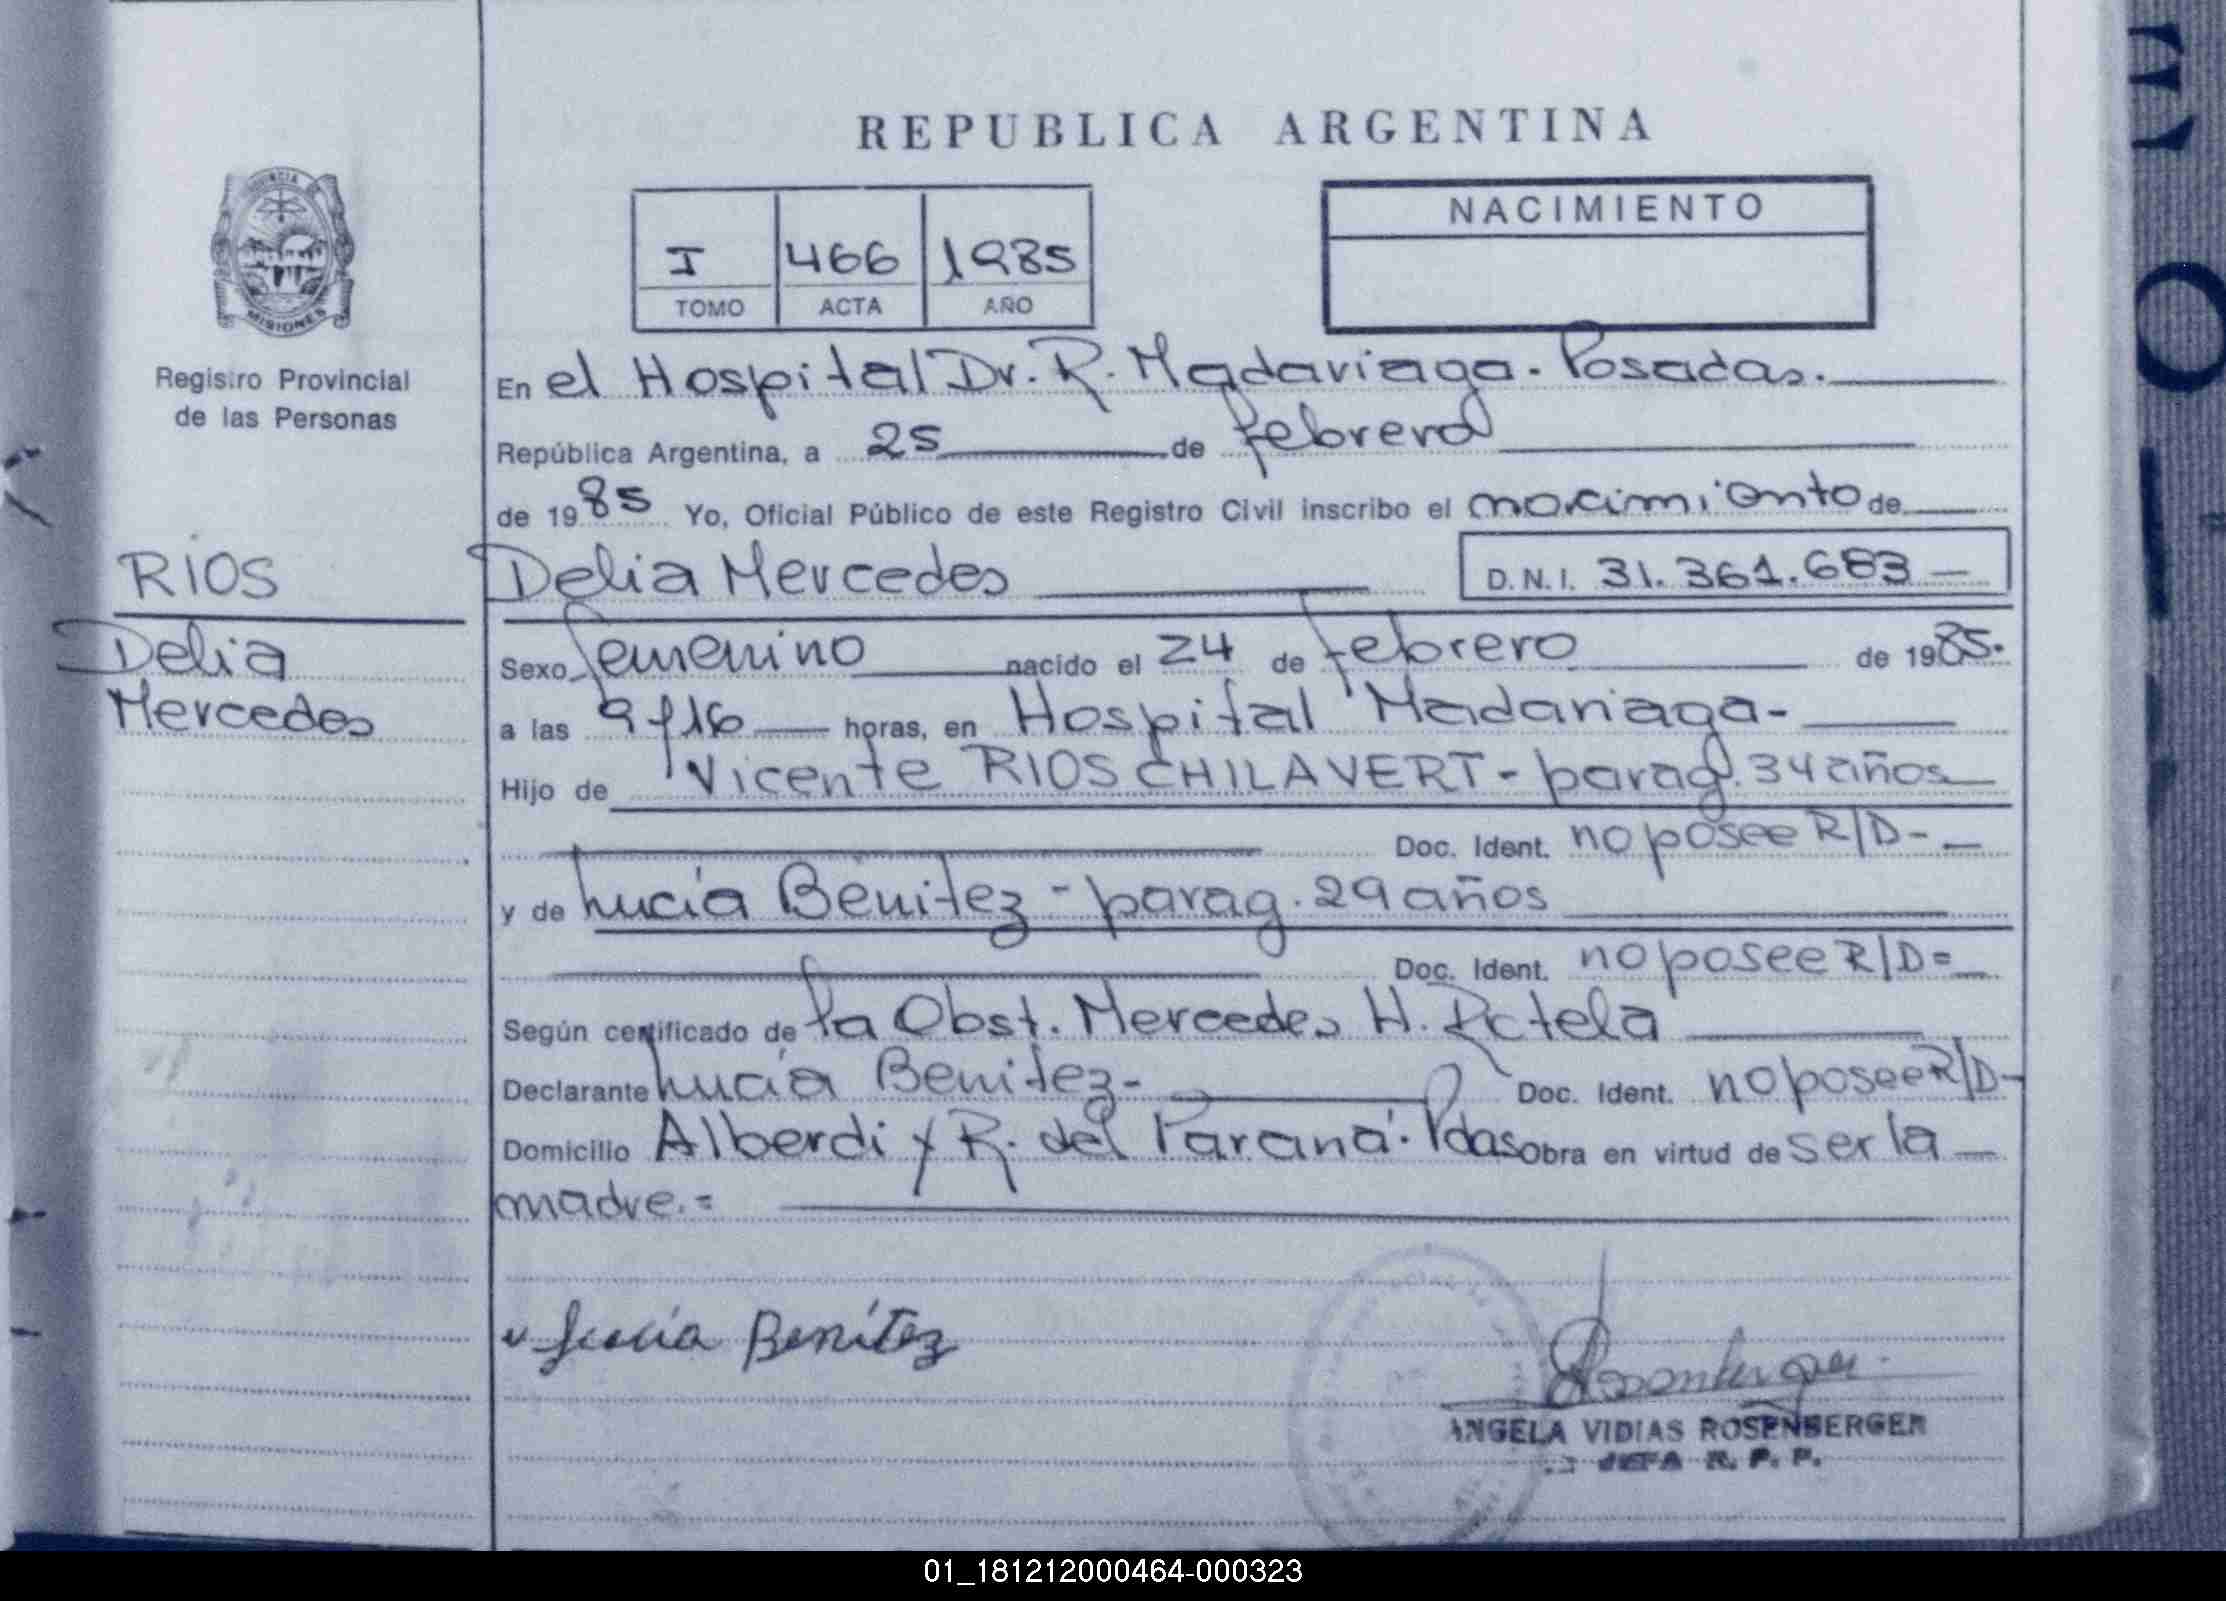 REPUBLICA ARGENTINA
PROVINCIA DE
MISIONES
Registro Provincial
de las Personas
I 466 1985
TOMO ACTA AÑO
NACIMIENTO
En el Hospital Dr. R. Madariaga. Posadas.
República Argentina, a 25 de febrero
de 1985 Yo, Oficial Público de este Registro Civil inscribo el nacimiento de
RIOS
Delia Mercedes D.N.I. 31.361.683 —
Delia
Mercedes
Sexo femenino nacido el 24 de febrero de 1985.
a las 9 y 16 horas, en Hospital Madariaga-
Hijo de Vicente RIOS CHILAVERT - parag. 34 años
Doc. Ident. no posee R/D-
y de Lucía Benitez - parag. 29 años
Doc. Ident. no posee R/D=
Según certificado de la Obst. Mercedes H. Rotela
Declarante Lucía Benitez- Doc. Ident. no posee R/D-
Domicilio Alberdi y R. del Paraná. Pdas Obra en virtud de ser la
madre.=
Lucía Benítez
Rosenberger
ANGELA VIDIAS ROSENBERGER
JEFA R. P. P.
01_181212000464-000323